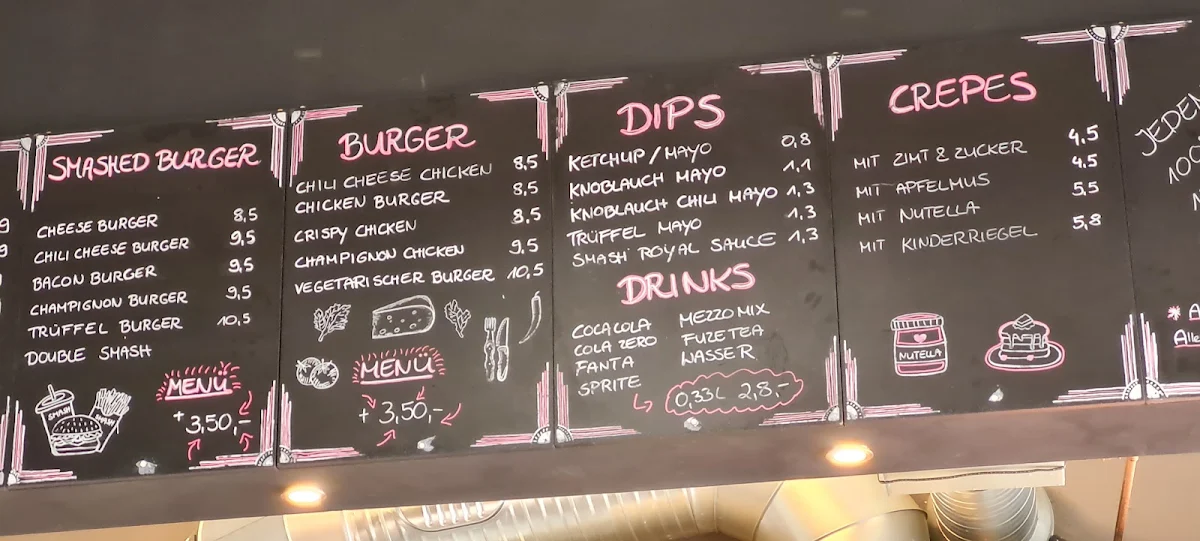 SMASHED BURGER
CHEESE BURGER 8,5
CHILI CHEESE BURGER 9,5
BACON BURGER 9,5
CHAMPIGNON BURGER 9,5
TRÜFFEL BURGER 10,5
DOUBLE SMASH
MENÜ
+ 3,50,-
SMASH
BURGER
CHILI CHEESE CHICKEN 8,5
CHICKEN BURGER 8,5
CRISPY CHICKEN 8,5
CHAMPIGNON CHICKEN 9,5
VEGETARISCHER BURGER 10,5
MENÜ
+ 3,50,-
DIPS
KETCHUP / MAYO 0,8
KNOBLAUCH MAYO 1,1
KNOBLAUCH CHILI MAYO 1,3
TRÜFFEL MAYO 1,3
SMASH ROYAL SAUCE 1,3
DRINKS
COCA COLA
COLA ZERO
FANTA
SPRITE
MEZZO MIX
FUZE TEA
WASSER
0,33L 2,8,-
CREPES
MIT ZIMT & ZUCKER 4,5
MIT APFELMUS 4,5
MIT NUTELLA 5,5
MIT KINDERRIEGEL 5,8
NUTELLA